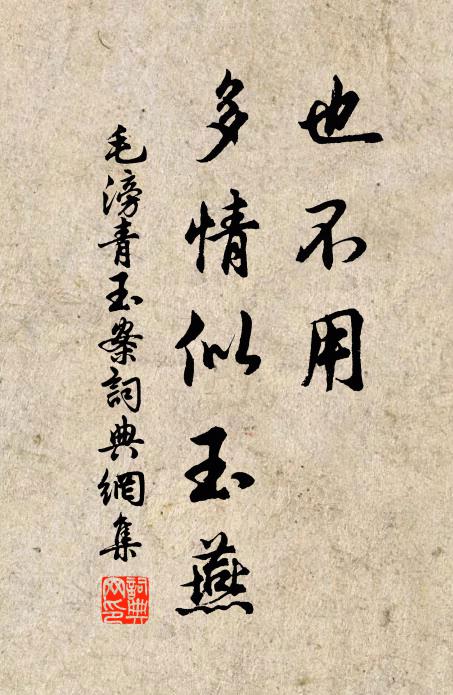 也不用
多情似玉燕
毛滂青玉案詞典網集
詞典網印